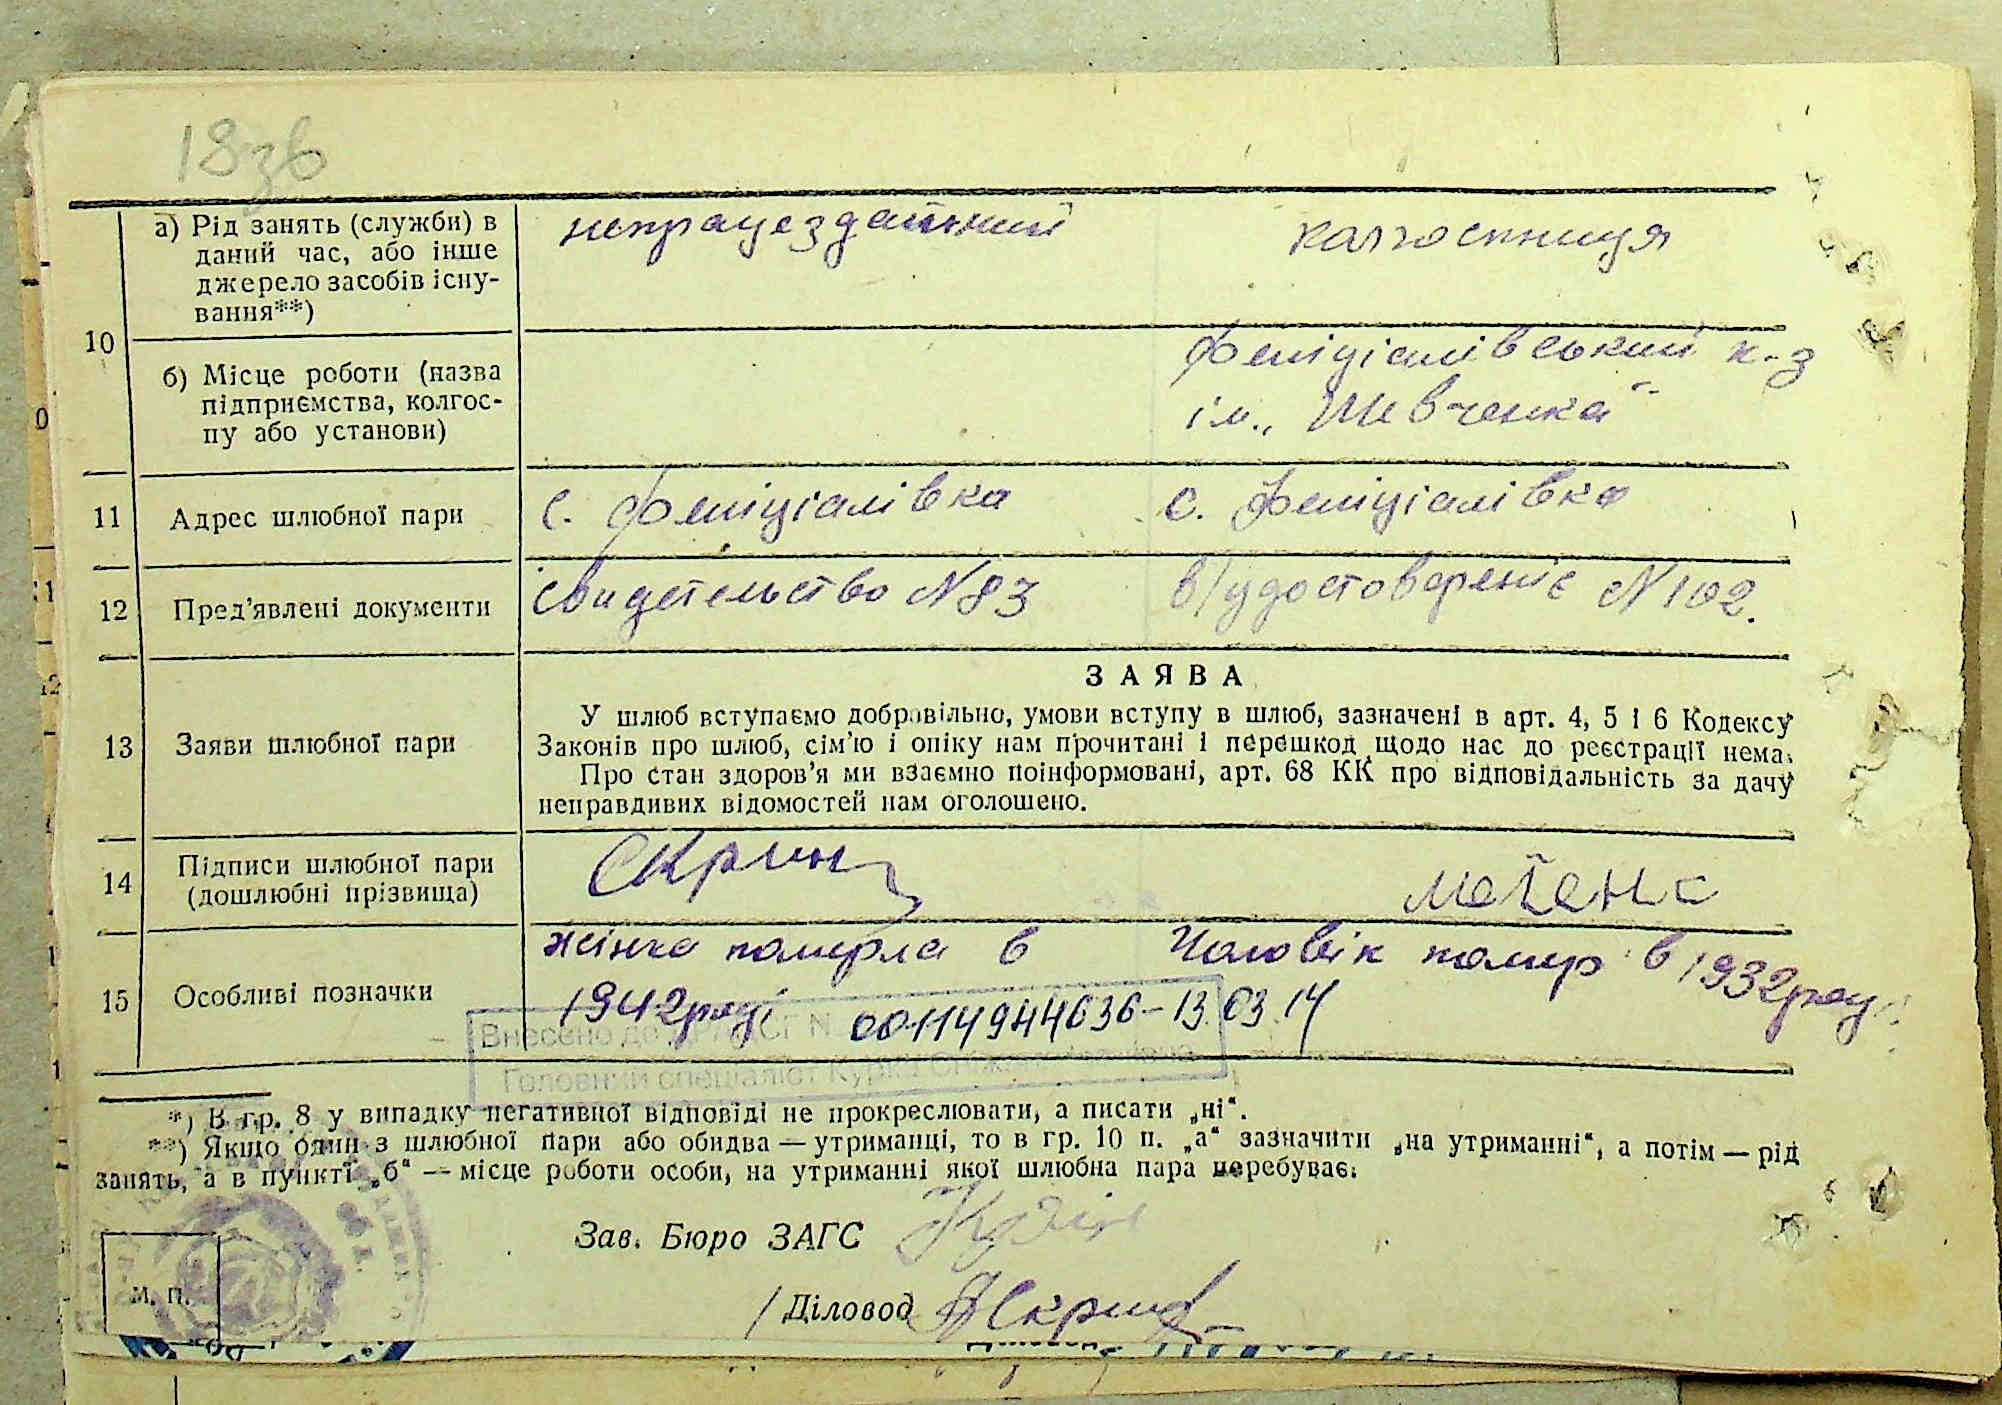 18зв
а) Рід занять (служби) в
даний час, або інше
джерело засобів існу-
вання**)
непрацездатний
колгоспниця
10
б) Місце роботи (назва
підприємства, колгос-
пу або установи)
Феліціалівський к-з
ім. „Шевченка"
11 Адрес шлюбної пари с. Феліціалівка с. Феліціалівка
12 Пред'явлені документи свидетельство N 83 в/удостовереніє N 102.
ЗАЯВА
13 Заяви шлюбної пари
У шлюб вступаємо добровільно, умови вступу в шлюб, зазначені в арт. 4, 5 і 6 Кодексу
Законів про шлюб, сім'ю і опіку нам прочитані і перешкод щодо нас до реєстрації нема.
Про стан здоров'я ми взаємно поінформовані, арт. 68 КК про відповідальність за дачу
неправдивих відомостей нам оголошено.
14 Підписи шлюбної пари
(дошлюбні прізвища)
15 Особливі позначки
жінка померла в
1942 році
Чоловік помер в 1932 році
Внесено до
00114944636-13.03.14
Головний спеціаліст Курка
*) В гр. 8 у випадку негативної відповіді не прокреслювати, а писати „ні".
**) Якщо один з шлюбної пари або обидва — утриманці, то в гр. 10 п. „а" зазначити „на утриманні", а потім — рід
занять, а в пункті „б" — місце роботи особи, на утриманні якої шлюбна пара перебуває.
Зав. Бюро ЗАГС
Діловод
М. П.